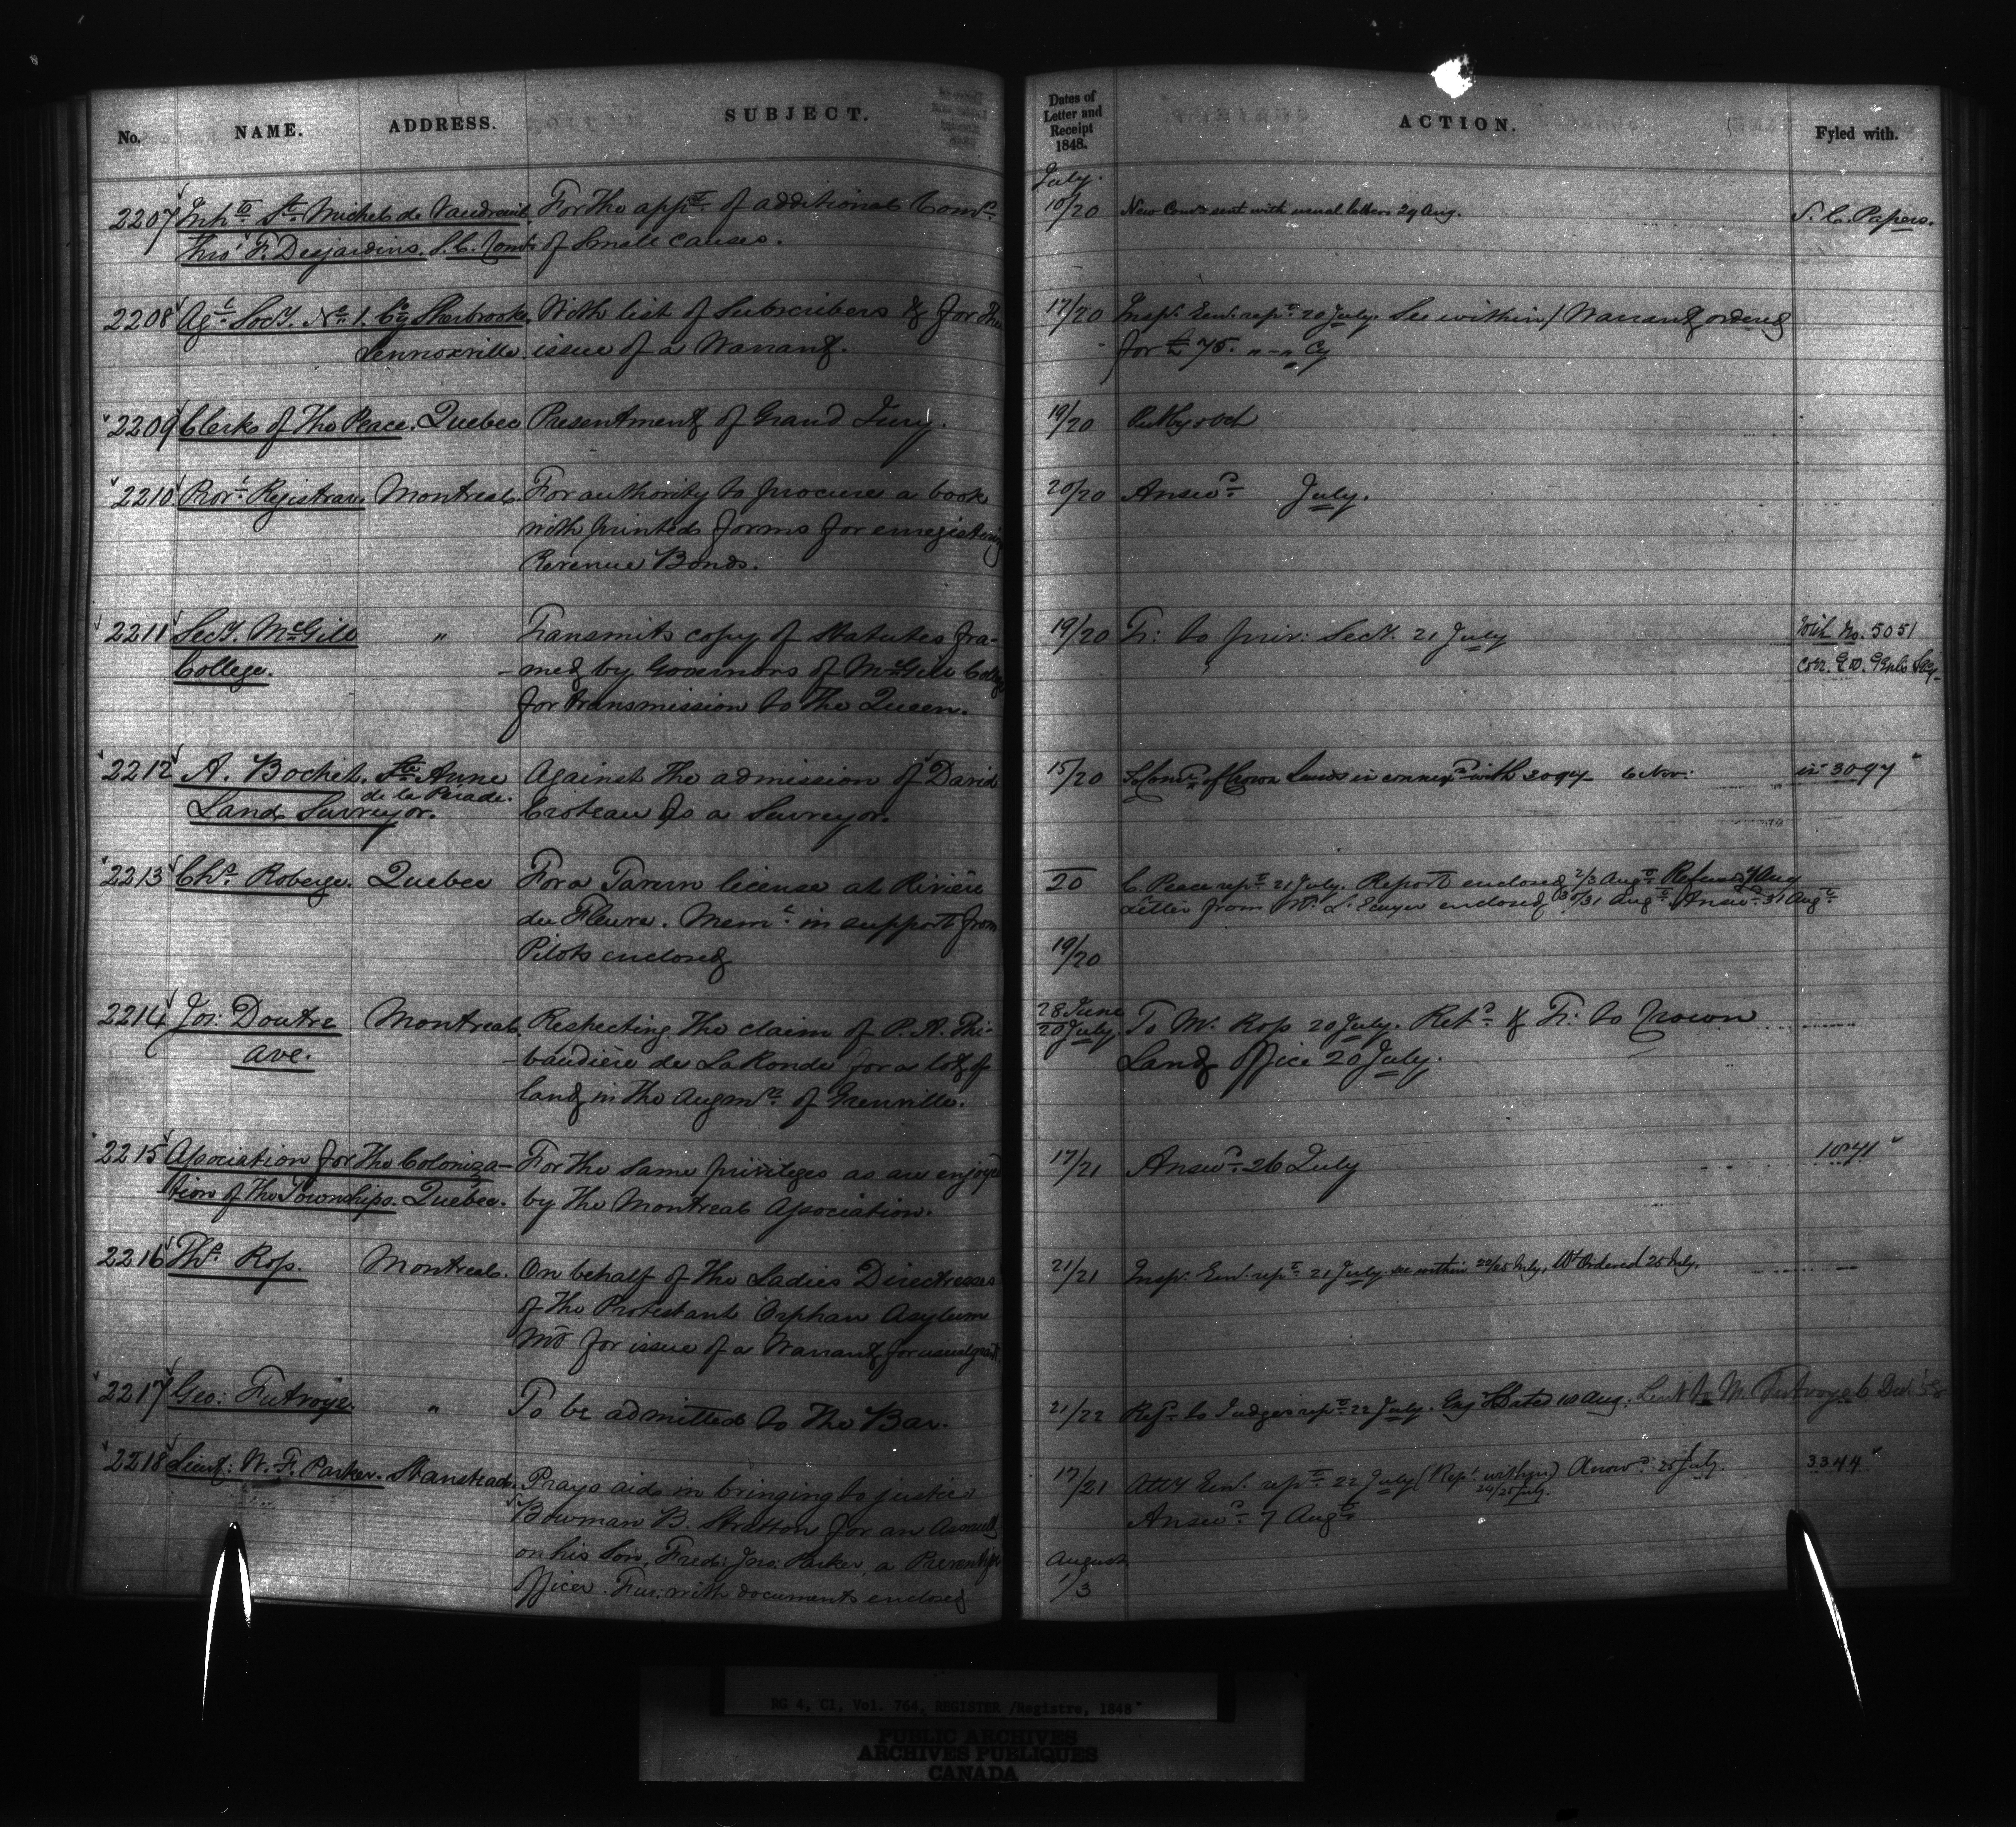 No. NAME. ADDRESS. SUBJECT. Dates of Letter and Receipt 1848. ACTION. Fyled with.
July.
2207 Inhts St Michel de Vaudreuil For the appt of additional Comrs 10/20 New Comn sent with usual letters 29 Aug. S. C. Papers.
thro' F. Desjardins, S.C. Comr of Small causes.
2208 Agl Socy. No 1. Co Sherbrooke With list of Subscribers & for the 17/20 Inspr Genl rept 20 July. See within / Warrant ordered
Lennoxville issue of a Warrant. for £75. " - " Cy
2209 Clerk of the Peace. Quebec Presentment of Grand Jury. 19/20 Put by
2210 Provl Registrar Montreal. For authority to procure a book 20/20 Answd July.
with printed forms for enregistering
Revenue Bonds.
2211 Secy. McGill " Transmits copy of Statutes fra- 19/20 Tr: to priv: Secy. 21 July With No. 5051
College. -med by Governors of McGill College
for transmission to the Queen.
2212 A. Bochet. Ste Anne Against the admission of David 15/20 To Comr of Crown Lands in connexn with 3097 6 Nov: in 3097
de la Pérade.
Land Surveyor. Croteau as a Surveyor.
2213 Chs Roberge. Quebec For a Tavern license at Rivière 20 C. Peace rept 21 July. Report enclosed 2/3 Augt Refused 4 Aug
du Fleure. Meml in support from Letter from Mr enclosed 30/31 Augt Answd 31 Augt
Pilots enclosed 19/20
2214 Jos: Doutre Montreal. Respecting the claim of P. A. Thi- 28 June
20 July To Mr Ross 20 July. Retd & Tr: to Crown
ave. -baudière de LaRonde for a lot of Land Office 20 July.
land in the Augmn of Grenville.
2215 Association for the Coloniza- For the same privileges as are enjoyd 17/21 Answd 26 July 1841
tion of the Townships. Quebec. by the Montreal Association.
2216 Ths Ross. Montreal. On behalf of the Ladies Directresses 21/21 Inspr Genl rept 21 July see within 22/25 July, Wt Ordered 25 July.
of the Protestant Orphan Asylum
Ml for issue of a Warrant for usual grant.
2217 Geo: Futvoye. " To be admitted to the Bar. 21/22 Refd to Judges rept 22 July. Dated 10 Aug. Sent to Mr Futvoye 6 Decr
2218 Lieut: W. F. Parker. Stanstead. Prays aid in bringing to justice 17/21 Atty Genl rept 22 July (Rept within) Answd 25 July 3344
24/25 July.
Bowman B. Stratton for an Assault Answd 7 Augt
on his Son, Fred: Jno: Parker, a Preventive August
Officer. Fur: with documents enclosed 1/3
RG 4, C1, Vol. 764, REGISTER /Registre, 1848
PUBLIC ARCHIVES
ARCHIVES PUBLIQUES
CANADA